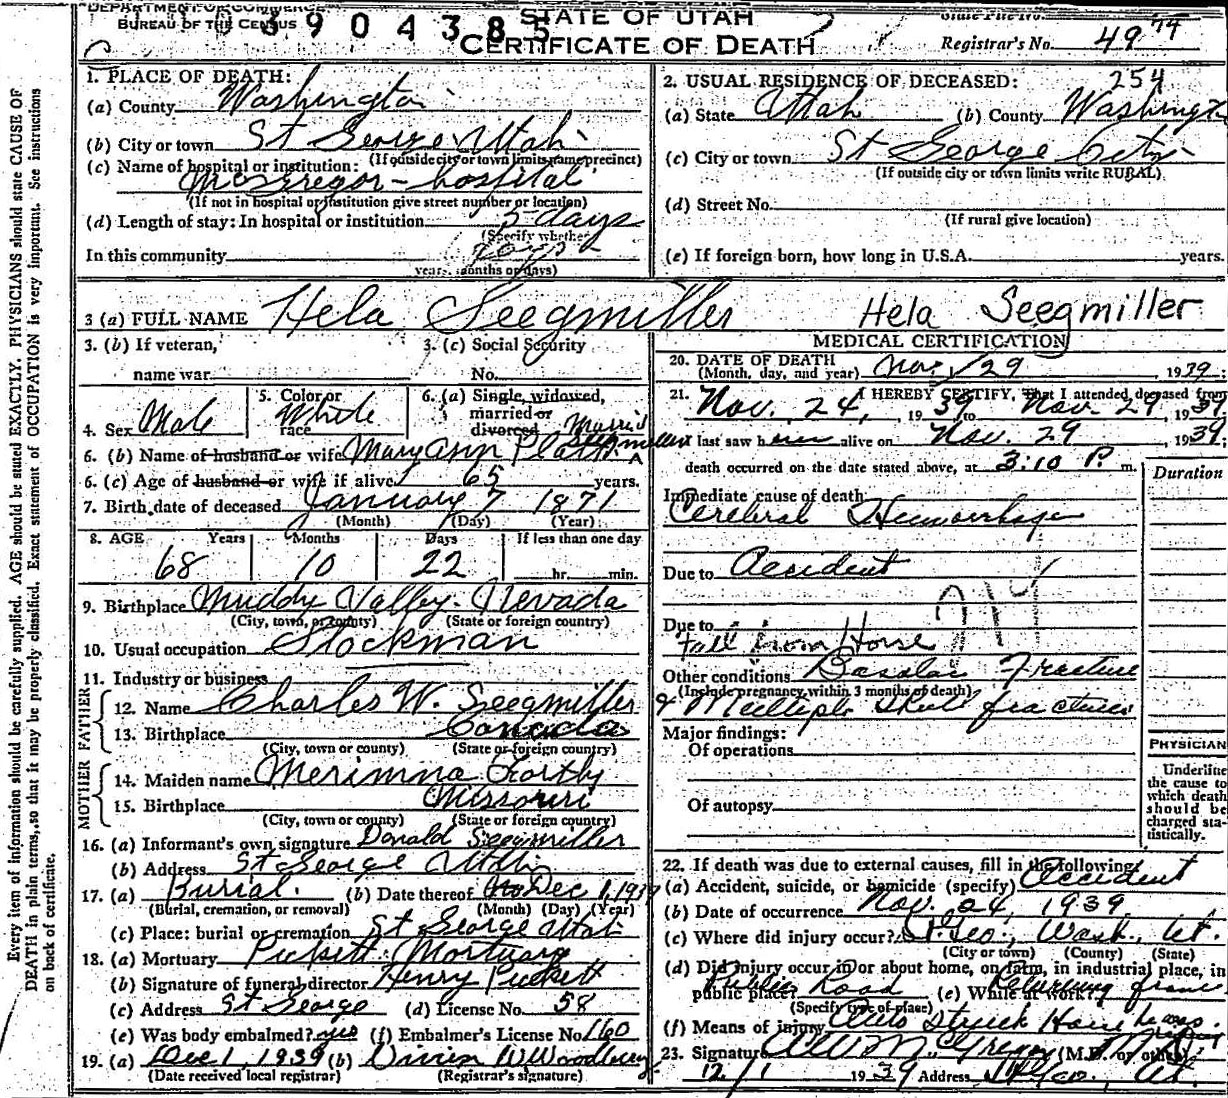 DEPARTMENT OF COMMERCE
BUREAU OF THE CENSUS
03904385
STATE OF UTAH
CERTIFICATE OF DEATH
State File No.
Registrar's No. 49 74
Every item of information should be carefully supplied. AGE should be stated EXACTLY. PHYSICIANS should state CAUSE OF
DEATH in plain terms, so that it may be properly classified. Exact statement of OCCUPATION is very important. See instructions
on back of certificate.
1. PLACE OF DEATH:
(a) County Washington
(b) City or town St George Utah
(If outside city or town limits name precinct)
(c) Name of hospital or institution:
McGregor - hospital
(If not in hospital or institution give street number or location)
(d) Length of stay: In hospital or institution 5 days
(Specify whether
In this community
years, months or days)
2. USUAL RESIDENCE OF DECEASED: 254
(a) State Utah (b) County Washingt
(c) City or town St George City
(If outside city or town limits write RURAL)
(d) Street No.
(If rural give location)
(e) If foreign born, how long in U.S.A. years.
3 (a) FULL NAME Hela Seegmiller Hela Seegmiller
3. (b) If veteran,
name war
3. (c) Social Security
No.
4. Sex Male
5. Color or race White
6. (a) Single, widowed, married or divorced Married
6. (b) Name of husband or wife Mary Ann Platt Seegmiller
6. (c) Age of husband or wife if alive 65 years.
7. Birth date of deceased January 7 1871
(Month) (Day) (Year)
8. AGE Years Months Days If less than one day
68 10 22 hr. min.
9. Birthplace Muddy Valley. Nevada
(City, town, or county) (State or foreign country)
10. Usual occupation Stockman
11. Industry or business
FATHER
12. Name Charles W. Seegmiller
13. Birthplace Canada
(City, town or county) (State or foreign country)
MOTHER
14. Maiden name Merimna
15. Birthplace Missouri
(City, town or county) (State or foreign country)
16. (a) Informant's own signature Donald Seegmiller
(b) Address St George Utah
17. (a) Burial. (b) Date thereof Dec 1, 1939
(Burial, cremation, or removal) (Month) (Day) (Year)
(c) Place: burial or cremation St George Utah
18. (a) Mortuary Pickett Mortuary
(b) Signature of funeral director Henry Pickett
(c) Address St George (d) License No. 58
(e) Was body embalmed? yes (f) Embalmer's License No. 160
19. (a) Dec 1, 1939 (b) W Woodbury
(Date received local registrar) (Registrar's signature)
MEDICAL CERTIFICATION
20. DATE OF DEATH
(Month, day, and year) Nov 29 1939;
21. I HEREBY CERTIFY, That I attended deceased from
Nov. 24, 1939 to Nov. 29, 1939
I last saw him alive on Nov. 29, 1939;
death occurred on the date stated above, at 3:10 P. m.
Duration
Immediate cause of death
Cerebral Hemorrhage
Due to Accident
Due to
Fall from Horse
Other conditions Basalar Fracture
(Include pregnancy within 3 months of death)
& Multiple Skull fractures
Major findings:
Of operations
Of autopsy
PHYSICIAN
Underline
the cause to
which death
should be
charged sta-
tistically.
22. If death was due to external causes, fill in the following:
(a) Accident, suicide, or homicide (specify) Accident
(b) Date of occurrence Nov. 24, 1939
(c) Where did injury occur? St. Geo., Wash., Ut.
(City or town) (County) (State)
(d) Did injury occur in or about home, on farm, in industrial place, in
public place? Public Road (e) While at work? Returning from
(Specify type of place)
(f) Means of injury Auto Struck Horse he was
23. Signature McGregor (M.D. or other) M.D.
12/1 1939 Address St Geo., Ut.